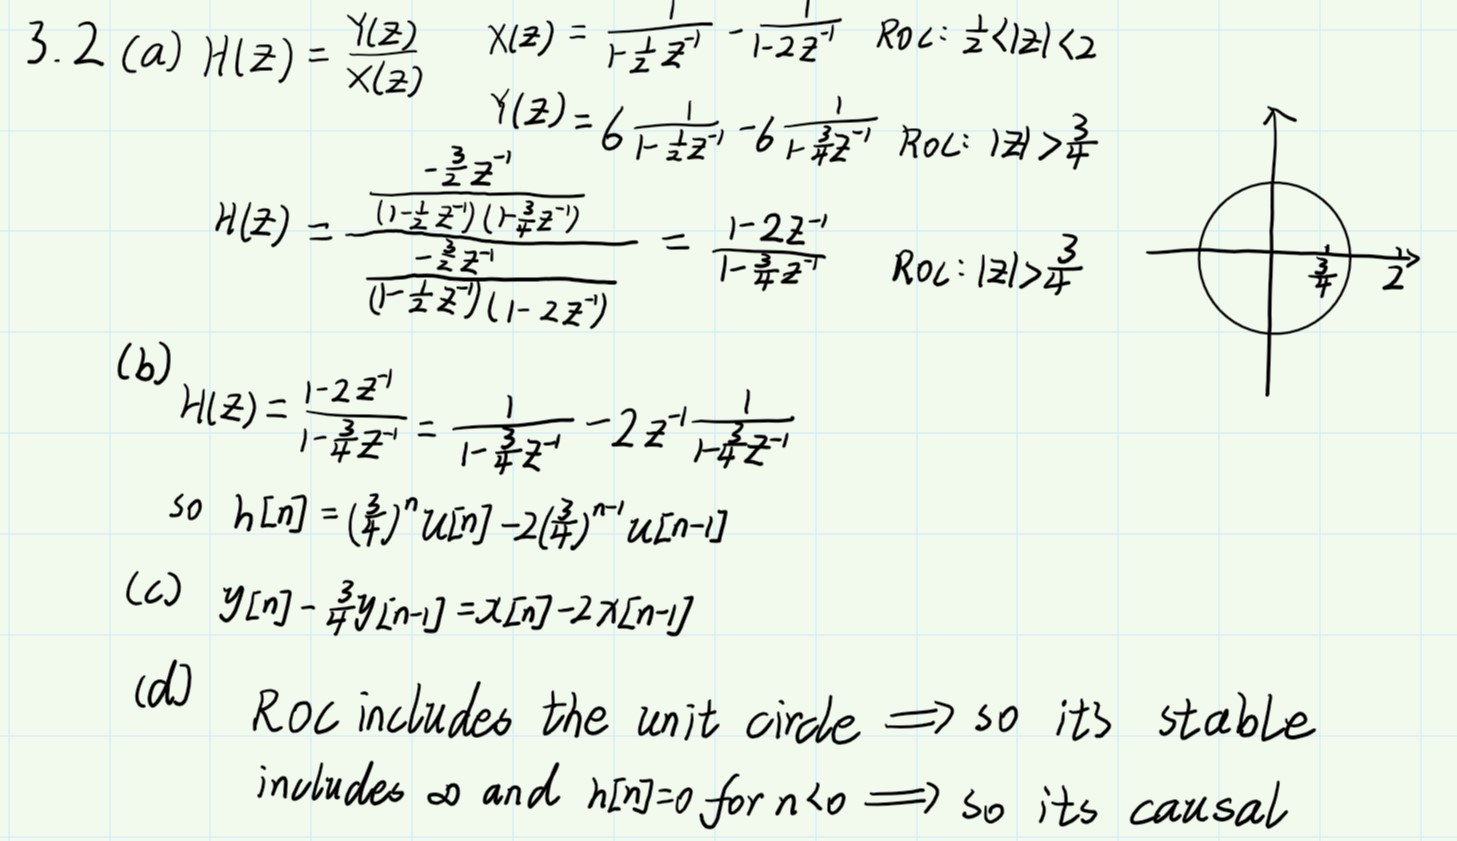 3.2 (a) H(z) = Y(z)/X(z)   X(z) = 1/(1-1/2 z⁻¹) - 1/(1-2z⁻¹)   ROC: 1/2<|z|<2
Y(z) = 6 1/(1-1/2 z⁻¹) - 6 1/(1-3/4 z⁻¹)   ROC: |z|>3/4
H(z) = (-3/2 z⁻¹/((1-1/2 z⁻¹)(1-3/4 z⁻¹)))/(-3/2 z⁻¹/((1-1/2 z⁻¹)(1-2z⁻¹))) = (1-2z⁻¹)/(1-3/4 z⁻¹)   ROC: |z|>3/4
3/4   2
(b)
H(z) = (1-2z⁻¹)/(1-3/4 z⁻¹) = 1/(1-3/4 z⁻¹) - 2z⁻¹ 1/(1-3/4 z⁻¹)
so h[n] = (3/4)ⁿ u[n] - 2(3/4)ⁿ⁻¹ u[n-1]
(c) y[n] - 3/4 y[n-1] = x[n] - 2x[n-1]
(d)
ROC includes the unit circle ⟹ so its stable
includes ∞ and h[n]=0 for n<0 ⟹ so its causal